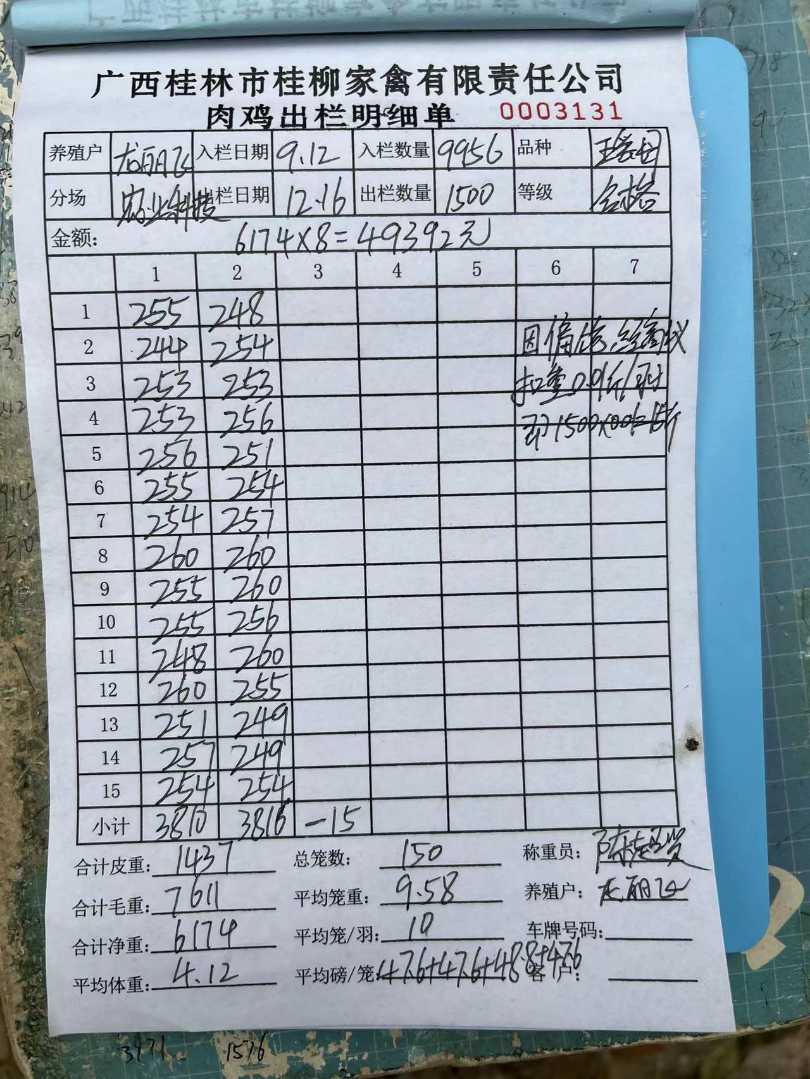 广西桂林市桂柳家禽有限责任公司
肉鸡出栏明细单 0003131
养殖户 龙丽飞 入栏日期 9.12 入栏数量 9956 品种
分场 农业科技 栏日期 12.16 出栏数量 1500 等级 合格
金额: 6174×8=49392元
1 2 3 4 5 6 7
1 255 248
2 244 254 因偏
3 253 253 扣重0.01斤/羽
4 253 256 即1500×0.01=15斤
5 256 251
6 255 254
7 254 257
8 260 260
9 255 260
10 255 256
11 248 260
12 260 255
13 251 249
14 257 249
15 254 254
小计 3810 3816 -15
合计皮重: 1437 总笼数: 150 称重员:
合计毛重: 7611 平均笼重: 9.58 养殖户: 龙丽飞
合计净重: 6174 平均笼/羽: 10 车牌号码:
平均体重: 4.12 平均磅/笼: 47.6+47.6+48.8+47.6 客户:
3971 1576